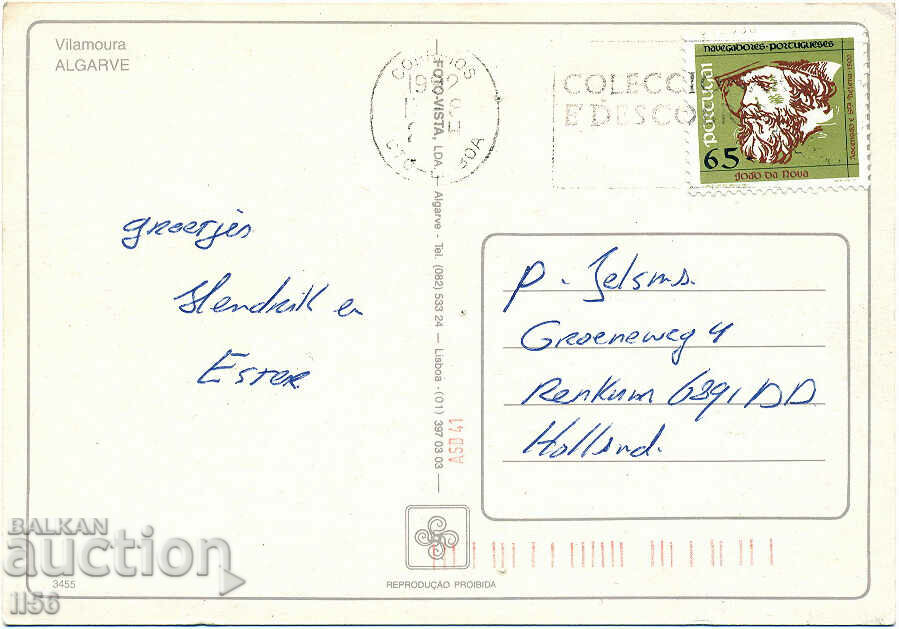 Vilamoura
ALGARVE
CORREIOS
COLECCI
E DESCO
NAVEGADORES · PORTUGUESES
PORTUGAL
65
JOÃO DA NOVA
groetjes
Hendrik en
Ester
FOTO-VISTA, LDA. - Algarve - Tel. (082) 533 24 - Lisboa - (01) 397 03 03
ASD 41
P. Jelsma.
Groeneweg 4
Renkum 6391 DD
Holland.
BALKAN
auction
3455
1156
REPRODUÇÃO PROIBIDA